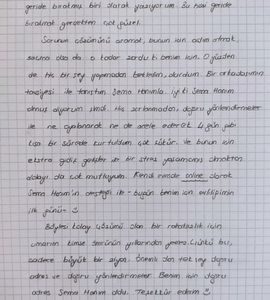 geride bırakmış biri olarak yazıyorum. Bu hissi geride
bırakmak gerçekten çok güzel.
Sorunun çözümünü aramak, bunun için adım atmak,
saçma olsa da o kadar zordu ki benim için. O yüzden
de hiç bir şey yapmadan bekledim, durdum. Bir arkadaşımın
tavsiyesi ile tanıştım Sema Hanımla. İyi ki Sema Hanım
olmuş diyorum şimdi. Hiç zorlanmadan, doğru yönlendirmeler
ile ne oyalanarak ne de acele ederek 4 gün gibi
kısa bir sürede kurtuldum çok şükür. Ve bunun için
ekstra gidiş gelişler ile bir stres yaşamamış olmaktan
dolayı da çok mutluyum. Kendi evimde online olarak
Sema Hanım'ın desteği ile - bugün benim için evliliğimin
ilk günü - :)
Böylesi kolay çözümü olan bir rahatsızlık için
umarım kimse ömrünün yıllarından yemez. Çünkü bu,
sadece büyük bir ziyan. Önemli olan tek şey doğru
adres ve doğru yönlendirmeler. Benim için doğru
adres Sema Hanım oldu. Teşekkür ederim :)